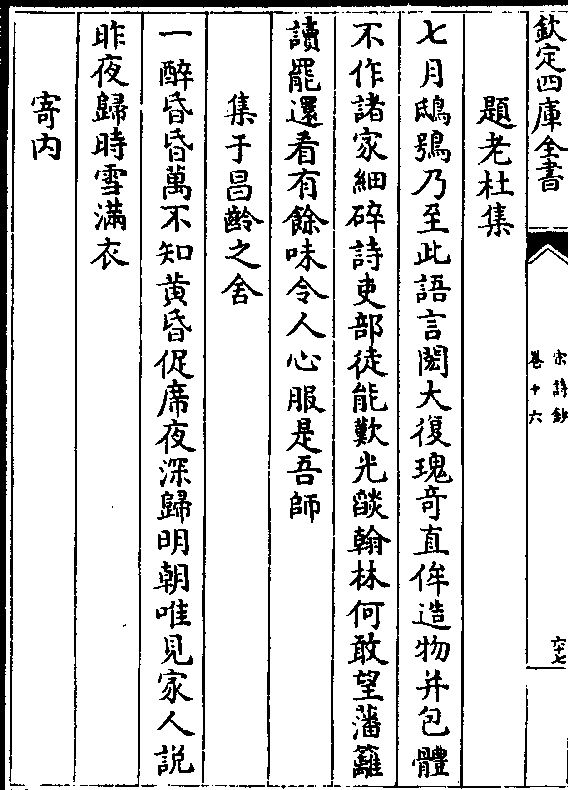 欽定四庫全書
宋詩鈔
卷十六
六十七
題老杜集
七月鴟鴞乃至此語言閎大復瑰奇直侔造物并包體
不作諸家細碎詩吏部徒能歎光燄翰林何敢望藩籬
讀罷還看有餘味令人心服是吾師
集于昌齡之舍
一醉昏昏萬不知黄昏促席夜深歸明朝唯見家人説
昨夜歸時雪滿衣
寄内